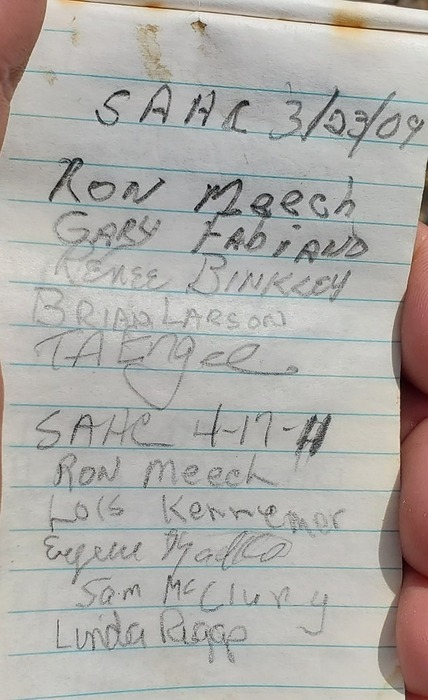 SAHC 3/23/09
RON Meech
GARY FABIANO
RENEE BINKLEY
BRIAN LARSON
TA Engel
SAHC 4-17-11
RON Meech
Lois Kennemor
Eugene
Sam McCluny
Linda Riggs